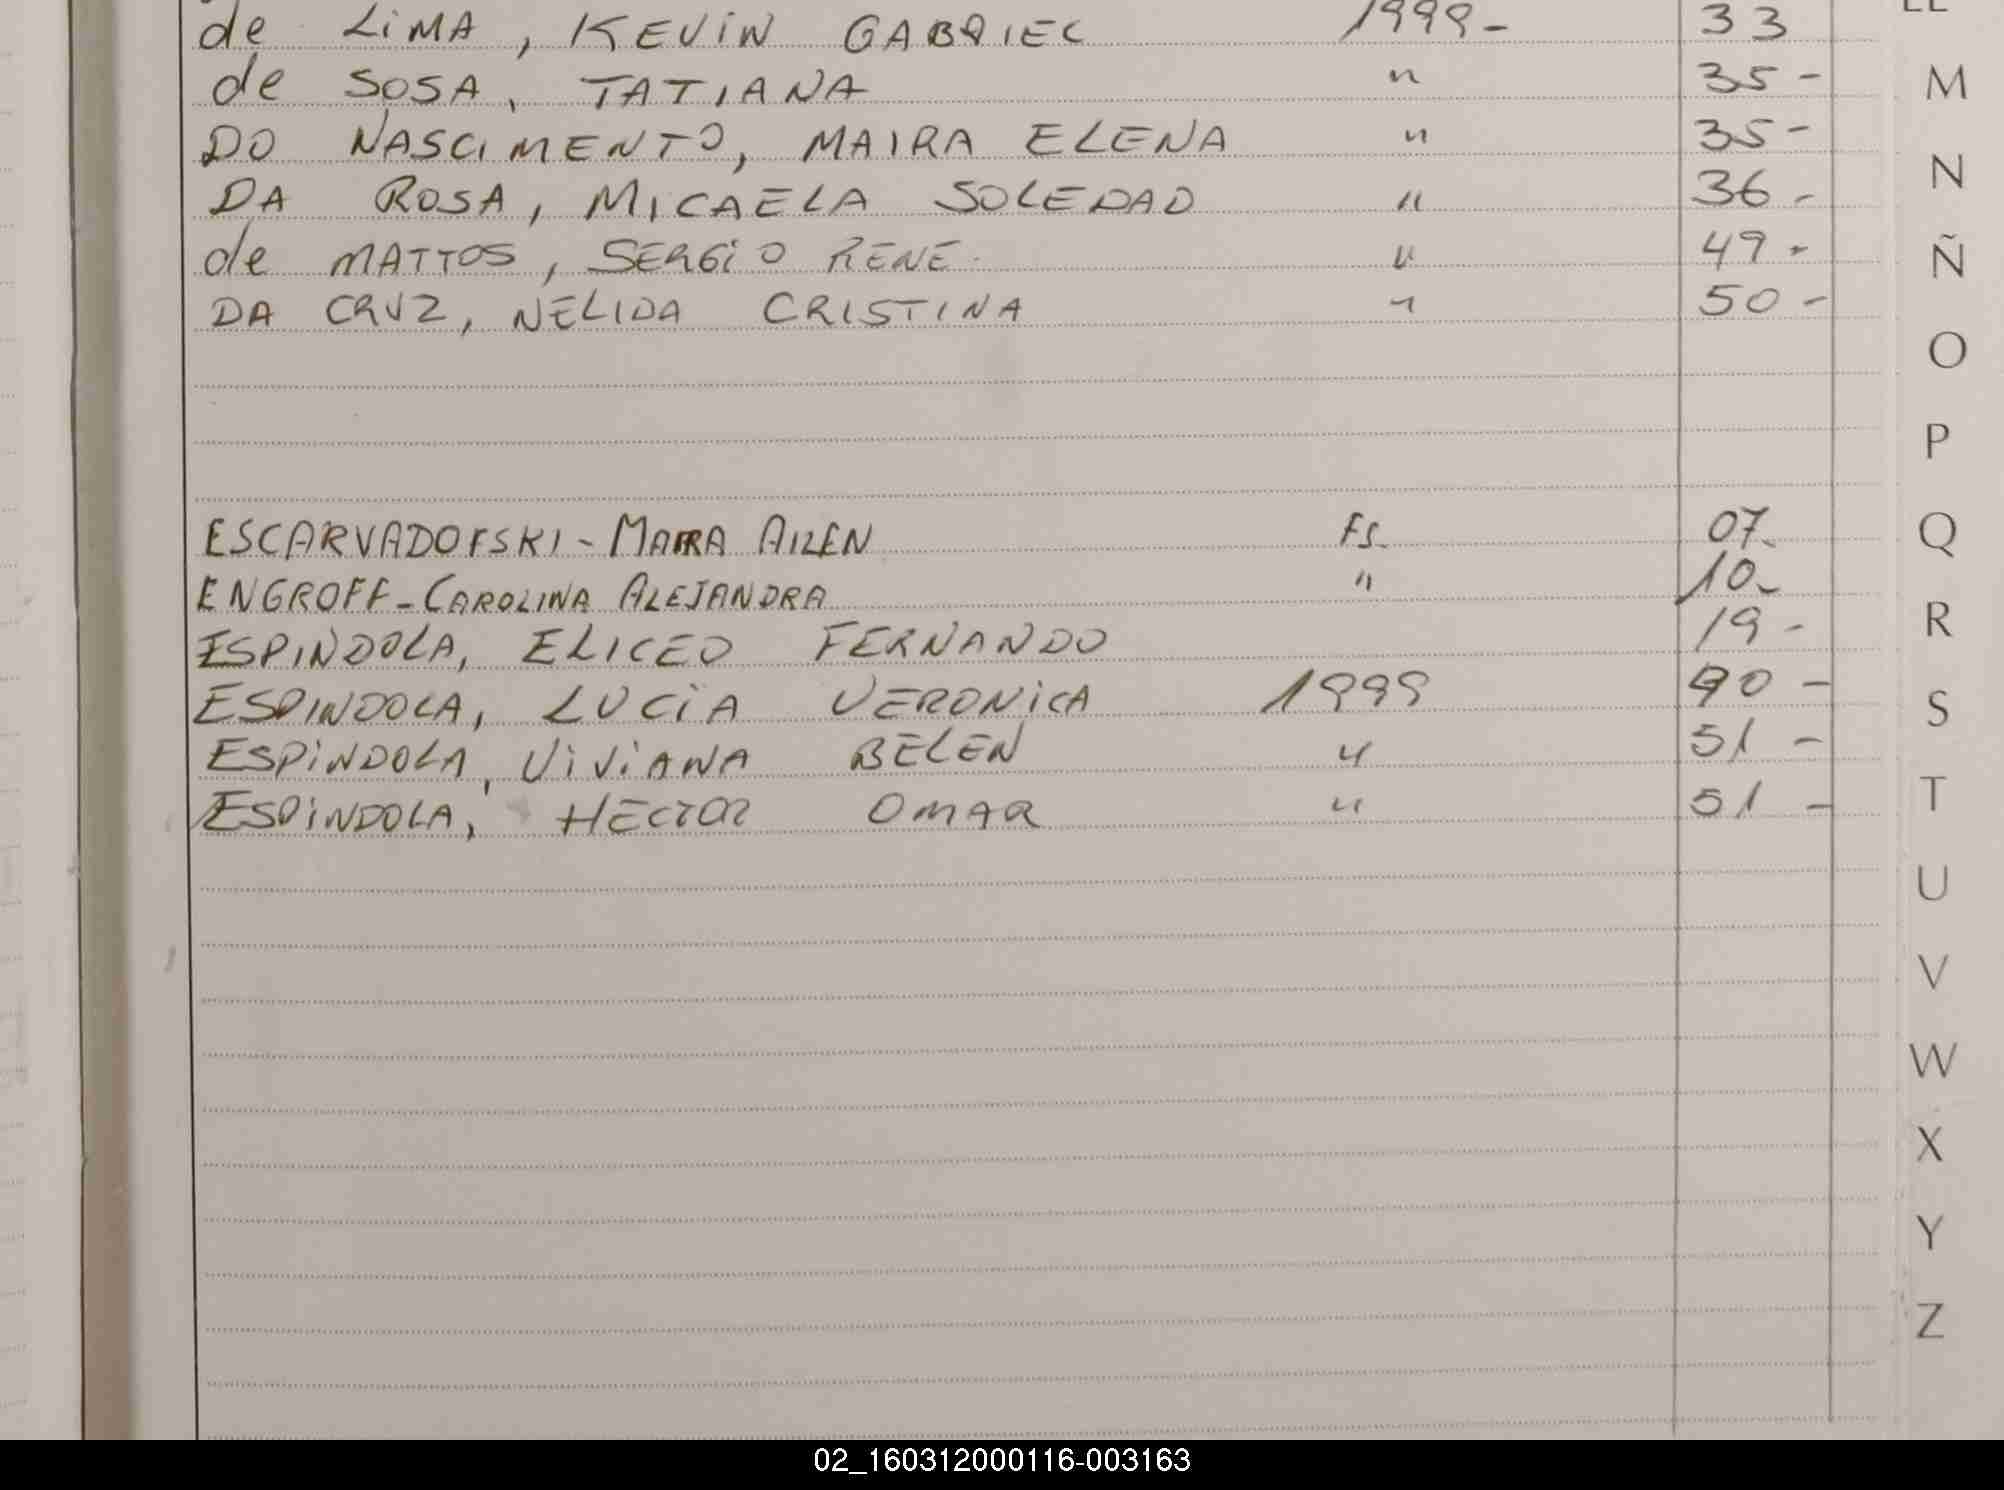 de LiMA, KEVIN GABRIEL 1999- 33
de SOSA, TATIANA " 35-
DO NASCIMENTO, MAIRA ELENA " 35-
DA ROSA, MICAELA SOLEDAD " 36-
de MATTOS, SERGiO RENE. " 49-
DA CRUZ, NELIDA CRISTINA " 50-
ESCARVADOFSKI - MAIRA AILEN FS. 07-
ENGROFF - CAROLINA ALEJANDRA " 10-
ESPINDOLA, ELICEO FERNANDO 19-
ESPINDOLA, LUCIA VERONICA 1999 90-
ESPINDOLA, ViViANA BELEN " 51-
ESPINDOLA, HECTOR OMAR " 51-
LL
M
N
Ñ
O
P
Q
R
S
T
U
V
W
X
Y
Z
02_160312000116-003163